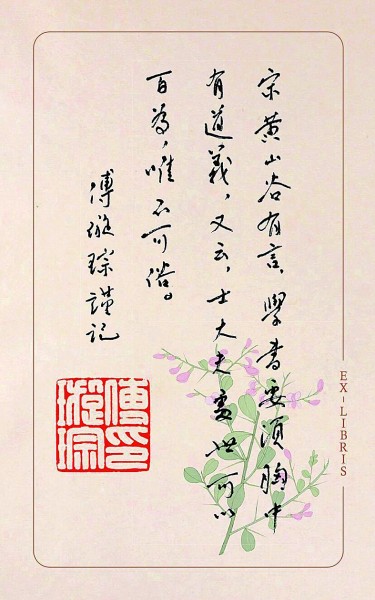 宋黄山谷有言、學书要须胸中
有道義，又云，士大夫處世可以
百為，唯不可俗。
傅璇琮谨记
傅印
璇琮
EX-LIBRIS